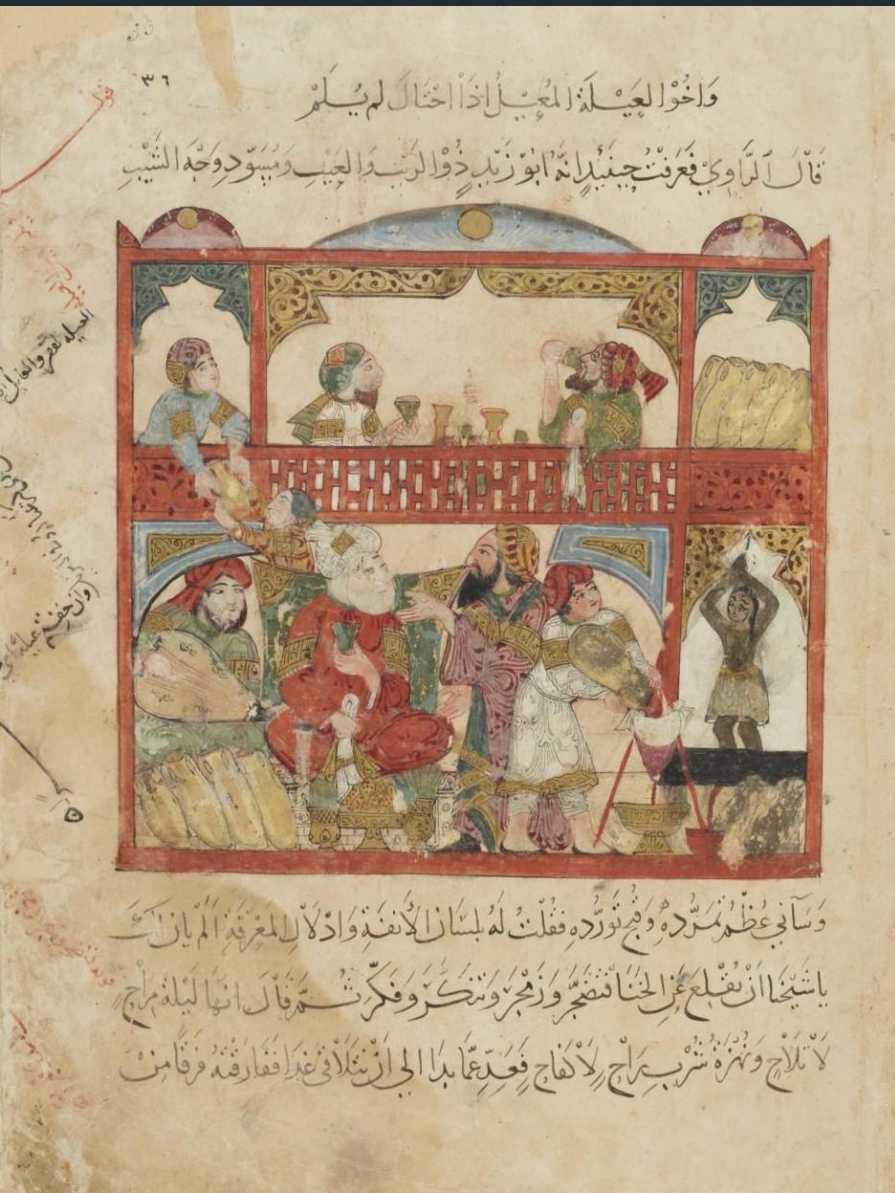 ٣٦
وَاخُوْا لعَيْلَةِ المُعِيْلُ اذَا احْتَالَ لم يُلَمْ
قالَ الرَّاوِيْ فعَرَفْتُ حِينَئِذٍ انهُ ابُوْ زَيْدٍ ذُوْا لرَيْبِ وَالعَيْبِ وَمُسَوِّدِ وَجْهِ الشَيْبِ
وَسَآنِي عُظْمُ تمَرُّدِهِ وَقُبْحُ تَوَرُّدِهِ فقُلْتُ لَهُ بلِسَانِ الأنَفَةِ وَادْلَالِ المَعْرِفَةِ المْ يَانِ لَكَ
يا شَيْخَنا انْ تُقْلِعَ عَنِ الخَنَا فَتَضَجَّرَ وَزَمْجَرَ وَتنَكَّرَ وَفَكَّرَ ثُمَّ قالَ انهَا لَيْلَةُ مِرَاحٍ
لَا تَلَاحٍ وَنُهْزَةُ شُرْبِ رَاحٍ لَا كفَاحٍ فَعَدِّ عَمَّا بدَا الى انْ نتَلَاقى غدًا ففَارَقْتُهُ فرَقًا مِنْ